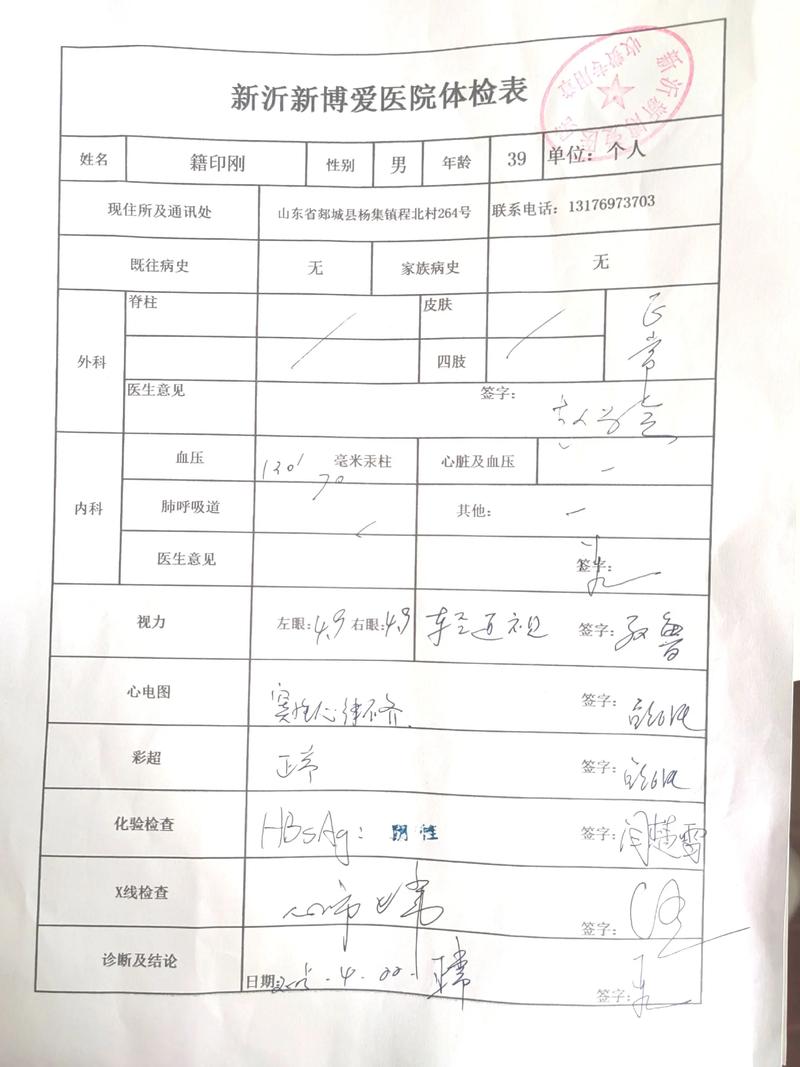 新沂新博爱医院体检表
新沂新博爱医院
收费专用章
姓名 籍印刚 性别 男 年龄 39 单位：个人
现住所及通讯处 山东省郯城县杨集镇程北村264号 联系电话：13176973703
既往病史 无 家族病史 无
外科 脊柱 皮肤 正常
四肢
医生意见 签字：
内科 血压 120/70 毫米汞柱 心脏及血压 —
肺呼吸道 其他： —
医生意见 签字：
视力 左眼：4.9 右眼：4.9 签字：
心电图 窦性心律不齐 签字：
彩超 正常 签字：
化验检查 HBsAg： 阴性 签字：
X线检查 签字：
诊断及结论 日期： 正常 签字：